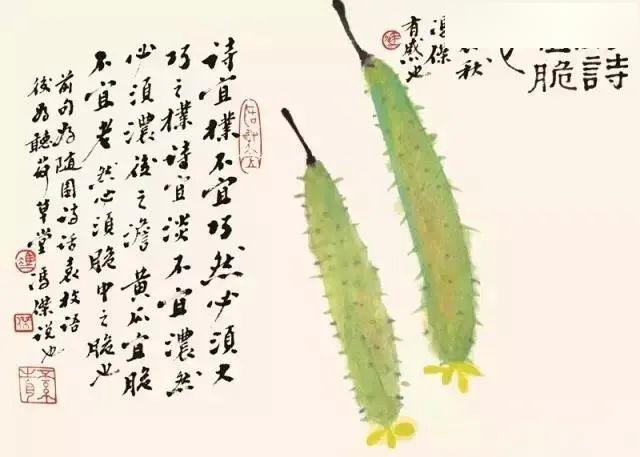 詩
脆
秋
馮傑
有感也
詩宜樸不宜巧然必須大
巧之樸詩宜淡不宜濃然
必須濃後之澹黄瓜宜脆
不宜老然必須脆中之脆也
前句為隨園詩話袁枚語
後為聽荷草堂馮傑説也